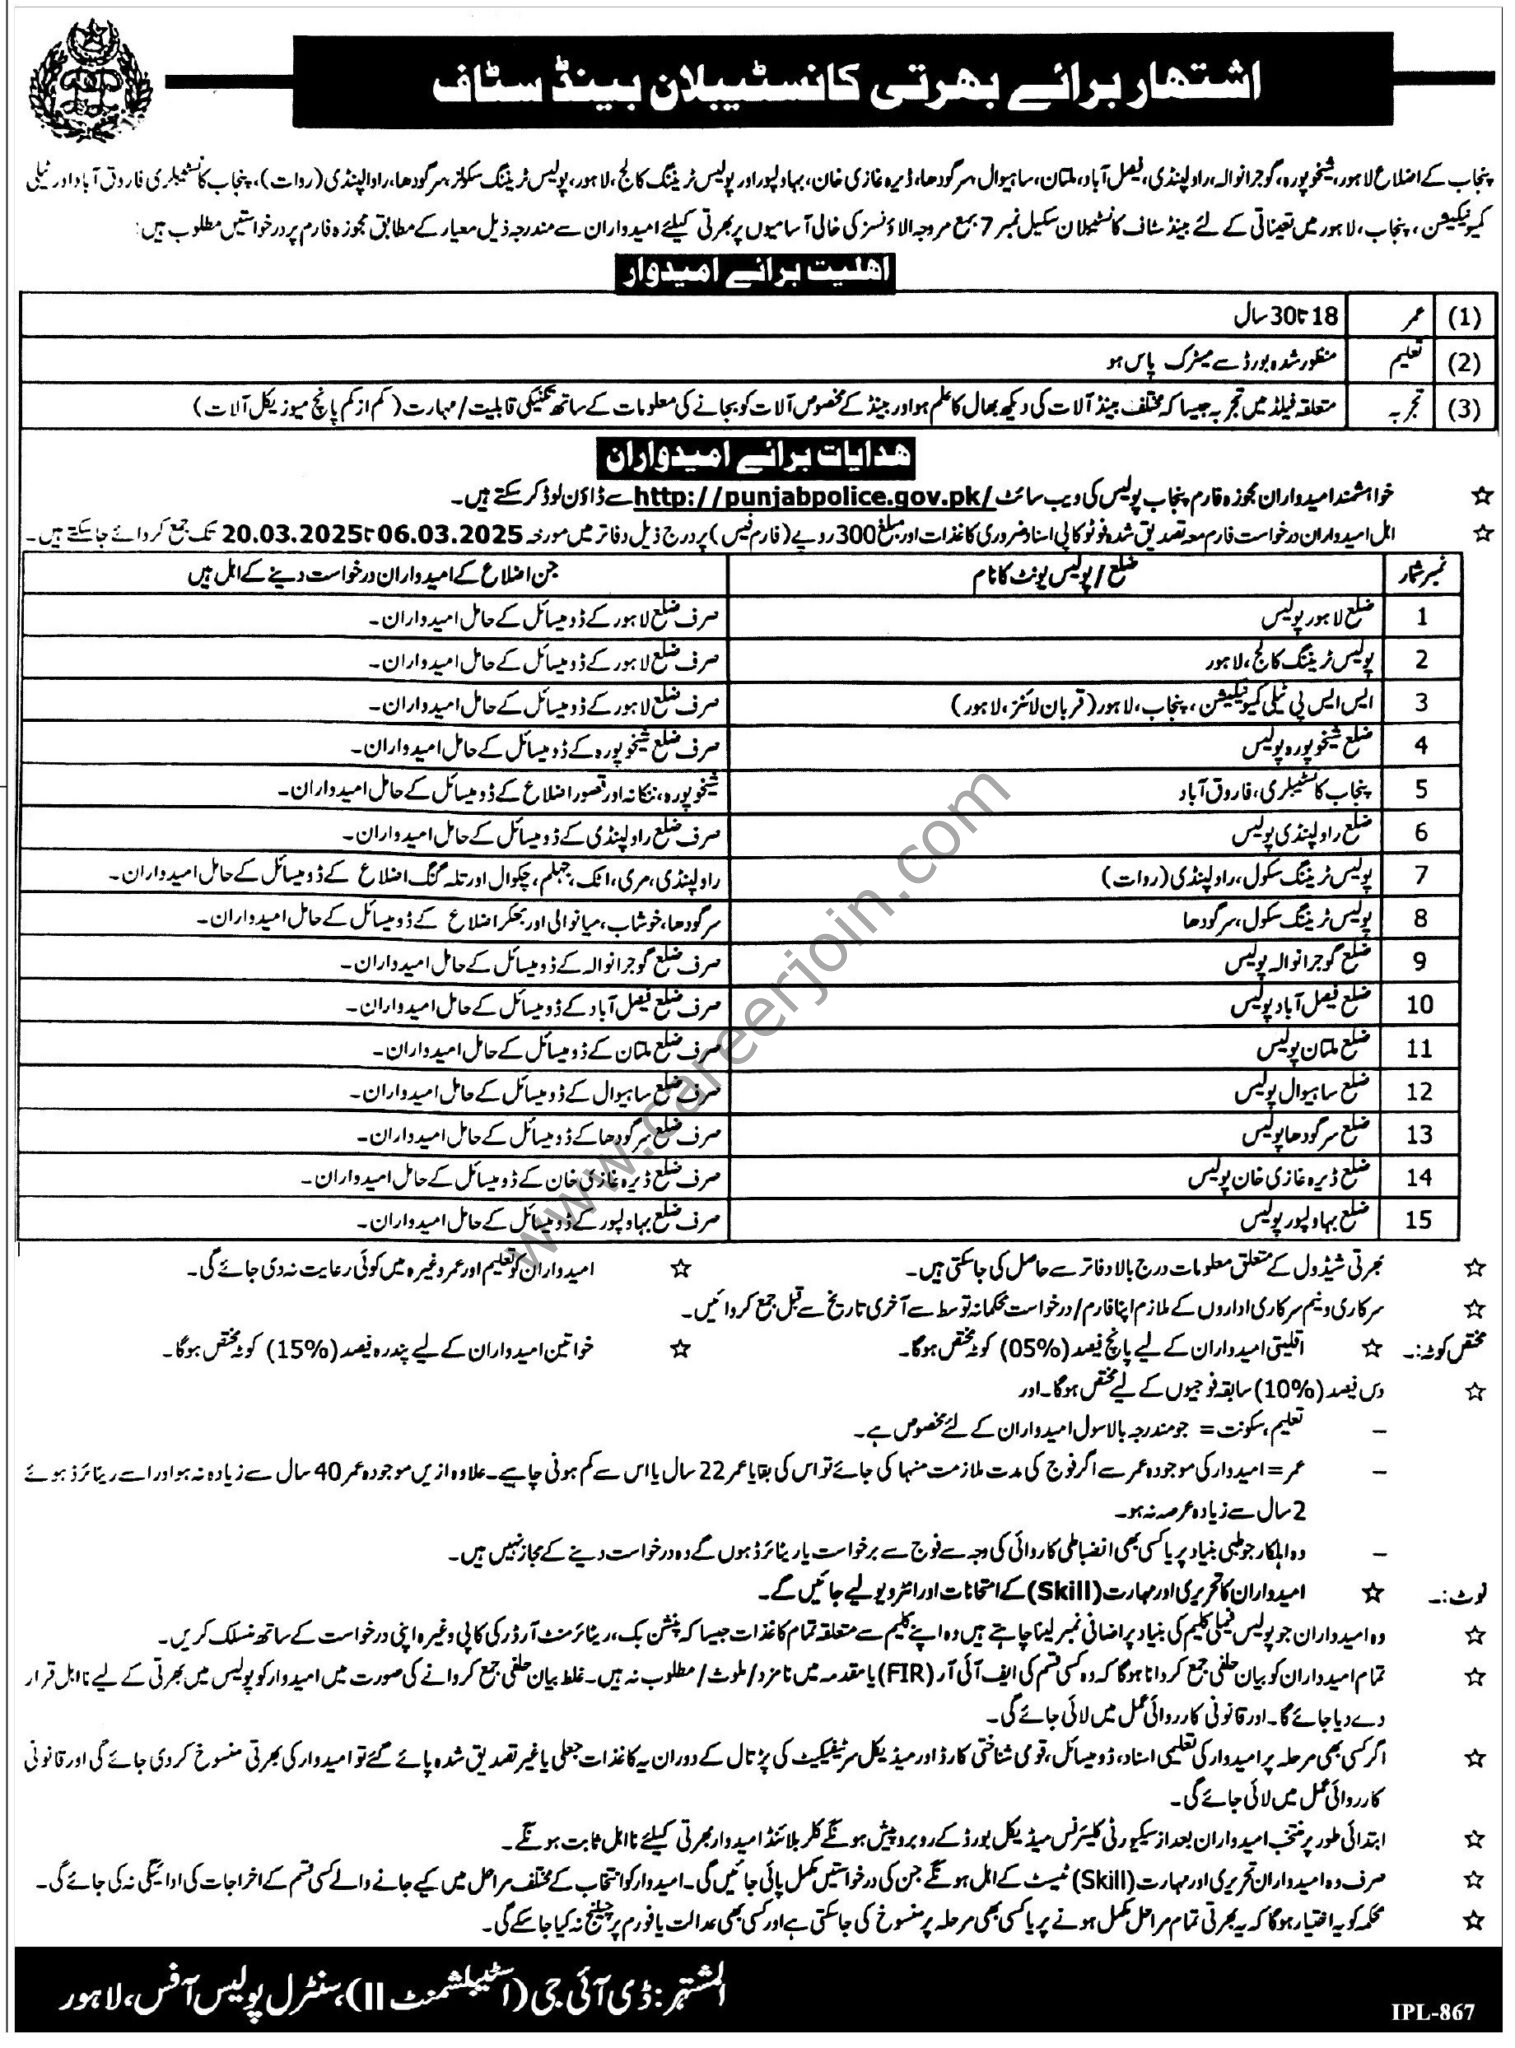 اشتہار برائے بھرتی کانسٹیبلان بینڈ سٹاف
پنجاب کے اضلاع لاہور، شیخوپورہ، گوجرانوالہ، راولپنڈی، فیصل آباد، ملتان، ساہیوال، سرگودھا، ڈیرہ غازی خان، بہاولپور اور پولیس ٹریننگ کالج، لاہور، پولیس ٹریننگ سکولز، سرگودھا، راولپنڈی (روات)، پنجاب کانسٹیبلری فاروق آباد اور ٹیلی
کمیونیکیشن، پنجاب، لاہور میں تعیناتی کے لئے بینڈ سٹاف کانسٹیبلان سکیل نمبر 7 بمع مروجہ الاؤنسز کی خالی آسامیوں پر بھرتی کیلئے امیدواران سے مندرجہ ذیل معیار کے مطابق مجوزہ فارم پر درخواستیں مطلوب ہیں:
اہلیت برائے امیدوار
(1) عمر 18 تا 30 سال
(2) تعلیم منظور شدہ بورڈ سے میٹرک پاس ہو
(3) تجربہ متعلقہ فیلڈ میں تجربہ جیسا کہ مختلف بینڈ آلات کی دیکھ بھال کا علم ہو اور بینڈ کے مخصوص آلات کو بجانے کی معلومات کے ساتھ تکنیکی قابلیت/مہارت (کم از کم پانچ میوزیکل آلات)
ہدایات برائے امیدواران
☆ خواہشمند امیدواران مجوزہ فارم پنجاب پولیس کی ویب سائٹ http://punjabpolice.gov.pk/ سے ڈاؤن لوڈ کر سکتے ہیں۔
☆ اہل امیدواران درخواست فارم معہ تصدیق شدہ فوٹو کاپی اسناد ضروری کاغذات اور مبلغ 300 روپے (فارم فیس) پر درج ذیل دفاتر میں مورخہ 06.03.2025 تا 20.03.2025 تک جمع کروائے جا سکتے ہیں۔
نمبر شمار ضلع/پولیس یونٹ کا نام جن اضلاع کے امیدواران درخواست دینے کے اہل ہیں
1 ضلع لاہور پولیس صرف ضلع لاہور کے ڈومیسائل کے حامل امیدواران۔
2 پولیس ٹریننگ کالج، لاہور صرف ضلع لاہور کے ڈومیسائل کے حامل امیدواران۔
3 ایس ایس پی ٹیلی کمیونیکیشن، پنجاب، لاہور (قربان لائنز، لاہور) صرف ضلع لاہور کے ڈومیسائل کے حامل امیدواران۔
4 ضلع شیخوپورہ پولیس صرف ضلع شیخوپورہ کے ڈومیسائل کے حامل امیدواران۔
5 پنجاب کانسٹیبلری، فاروق آباد شیخوپورہ، ننکانہ اور قصور اضلاع کے ڈومیسائل کے حامل امیدواران۔
6 ضلع راولپنڈی پولیس صرف ضلع راولپنڈی کے ڈومیسائل کے حامل امیدواران۔
7 پولیس ٹریننگ سکول، راولپنڈی (روات) راولپنڈی، مری، اٹک، جہلم، چکوال اور تلہ گنگ اضلاع کے ڈومیسائل کے حامل امیدواران۔
8 پولیس ٹریننگ سکول، سرگودھا سرگودھا، خوشاب، میانوالی اور بھکر اضلاع کے ڈومیسائل کے حامل امیدواران۔
9 ضلع گوجرانوالہ پولیس صرف ضلع گوجرانوالہ کے ڈومیسائل کے حامل امیدواران۔
10 ضلع فیصل آباد پولیس صرف ضلع فیصل آباد کے ڈومیسائل کے حامل امیدواران۔
11 ضلع ملتان پولیس صرف ضلع ملتان کے ڈومیسائل کے حامل امیدواران۔
12 ضلع ساہیوال پولیس صرف ضلع ساہیوال کے ڈومیسائل کے حامل امیدواران۔
13 ضلع سرگودھا پولیس صرف ضلع سرگودھا کے ڈومیسائل کے حامل امیدواران۔
14 ضلع ڈیرہ غازی خان پولیس صرف ضلع ڈیرہ غازی خان کے ڈومیسائل کے حامل امیدواران۔
15 ضلع بہاولپور پولیس صرف ضلع بہاولپور کے ڈومیسائل کے حامل امیدواران۔
☆ بھرتی شیڈول کے متعلق معلومات درج بالا دفاتر سے حاصل کی جا سکتی ہیں۔ ☆ امیدواران کو تعلیم اور عمر وغیرہ میں کوئی رعایت نہ دی جائے گی۔
☆ سرکاری و نیم سرکاری اداروں کے ملازم اپنا فارم/درخواست محکمانہ توسط سے آخری تاریخ سے قبل جمع کروائیں۔
مختص کوٹہ:۔ ☆ اقلیتی امیدواران کے لیے پانچ فیصد (05%) کوٹہ مختص ہوگا۔ ☆ خواتین امیدواران کے لیے پندرہ فیصد (15%) کوٹہ مختص ہوگا۔
☆ دس فیصد (10%) سابقہ فوجیوں کے لیے مختص ہوگا۔ اور
– تعلیم، سکونت = جو مندرجہ بالا سول امیدواران کے لئے مخصوص ہے۔
– عمر = امیدوار کی موجودہ عمر سے اگر فوج کی مدت ملازمت منہا کی جائے تو اس کی بقایا عمر 22 سال یا اس سے کم ہونی چاہیے۔ علاوہ ازیں موجودہ عمر 40 سال سے زیادہ نہ ہو اور اسے ریٹائرڈ ہوئے
2 سال سے زیادہ عرصہ نہ ہو۔
– وہ اہلکار جو طبی بنیاد پر یا کسی بھی انضباطی کاروائی کی وجہ سے فوج سے برخواست یا ریٹائرڈ ہوں گے وہ درخواست دینے کے مجاز نہیں ہیں۔
نوٹ:۔ ☆ امیدواران کا تحریری اور مہارت (Skill) کے امتحانات اور انٹرویو لیے جائیں گے۔
☆ وہ امیدواران جو پولیس فیملی کلیم کی بنیاد پر اضافی نمبر لینا چاہتے ہیں وہ اپنے کلیم سے متعلقہ تمام کاغذات جیسا کہ پنشن بک، ریٹائرمنٹ آرڈر کی کاپی وغیرہ اپنی درخواست کے ساتھ منسلک کریں۔
☆ تمام امیدواران کو بیان حلفی جمع کروانا ہوگا کہ وہ کسی قسم کی ایف آئی آر (FIR) یا مقدمہ میں نامزد/ملوث/مطلوب نہ ہیں۔ غلط بیان حلفی جمع کروانے کی صورت میں امیدوار کو پولیس میں بھرتی کے لیے نااہل قرار
دے دیا جائے گا۔ اور قانونی کارروائی عمل میں لائی جائے گی۔
☆ اگر کسی بھی مرحلہ پر امیدوار کی تعلیمی اسناد، ڈومیسائل، قومی شناختی کارڈ اور میڈیکل سرٹیفکیٹ کی پڑتال کے دوران یہ کاغذات جعلی یا غیر تصدیق شدہ پائے گئے تو امیدوار کی بھرتی منسوخ کر دی جائے گی اور قانونی
کارروائی عمل میں لائی جائے گی۔
☆ ابتدائی طور پر منتخب امیدواران بعد از سیکیورٹی کلیئرنس میڈیکل بورڈ کے روبرو پیش ہونگے کلر بلائنڈ امیدوار بھرتی کیلئے نااہل ثابت ہونگے۔
☆ صرف وہ امیدواران تحریری اور مہارت (Skill) ٹیسٹ کے اہل ہونگے جن کی درخواستیں مکمل پائی جائیں گی۔ امیدوار کو انتخاب کے مختلف مراحل میں کیے جانے والے کسی قسم کے اخراجات کی ادائیگی نہ کی جائے گی۔
☆ محکمہ کو یہ اختیار ہوگا کہ یہ بھرتی تمام مراحل مکمل ہونے پر یا کسی بھی مرحلہ پر منسوخ کی جا سکتی ہے اور کسی بھی عدالت یا فورم پر چیلنج نہ کیا جا سکے گا۔
المشتہر: ڈی آئی جی (اسٹیبلشمنٹ II)، سنٹرل پولیس آفس، لاہور
IPL-867
www.careerjoin.com